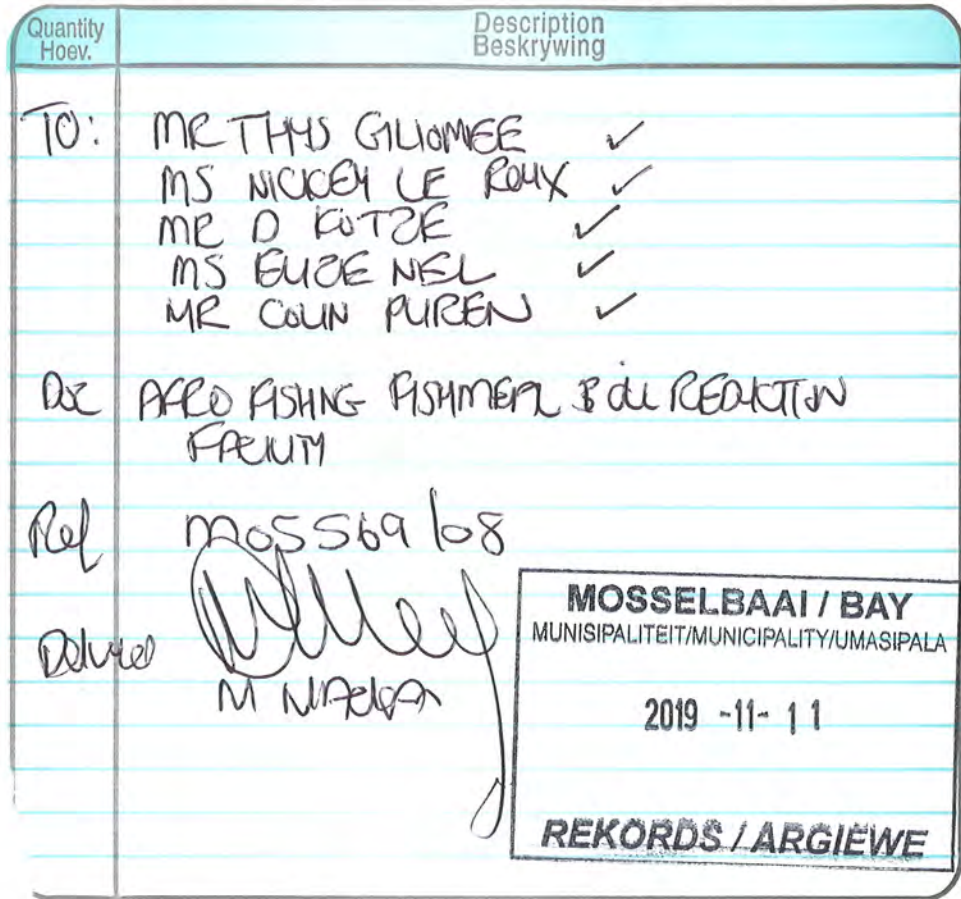 Quantity
Hoev.
Description
Beskrywing
TO: MR THYS GILIOMEE ✓
MS NICKEY LE ROUX ✓
MR D KOTZE ✓
MS ELIZE NEL ✓
MR COLIN PUREN ✓
Doc AFRO FISHING FISHMEAL & OIL REDUCTION
FACILITY
Ref MOS569/08
M
MOSSELBAAI / BAY
MUNISIPALITEIT/MUNICIPALITY/UMASIPALA
2019 -11- 11
REKORDS / ARGIEWE